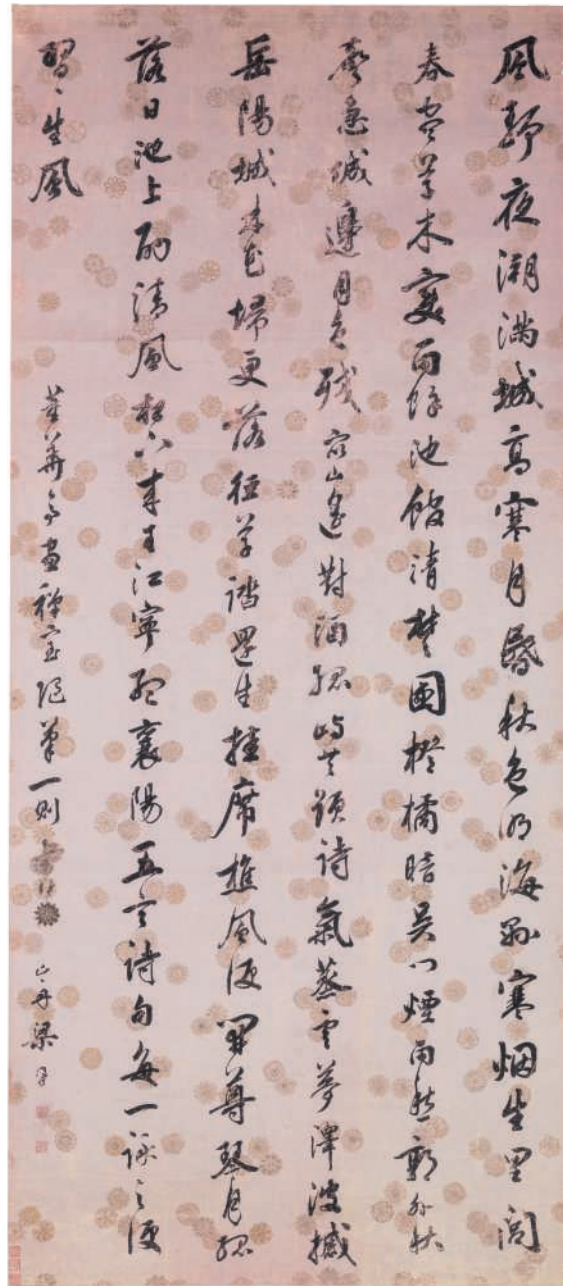 風靜夜潮滿城高寒月昏秋色明海縣寒烟生里閭
春盡草木變雨餘池館清楚國橙橘暗吳門煙雨愁郭外秋
聲急城邊月色殘眾山遙對酒孤嶼共題詩氣蒸雲夢澤波撼
岳陽城來花埽更落徑草踏還生掛席樵風便開尊琴月孤
落日池上酌清風松下來王江寧孟襄陽五言詩句每一詠之便
習〻生風
董華亭畫禪室隨筆一則 梁